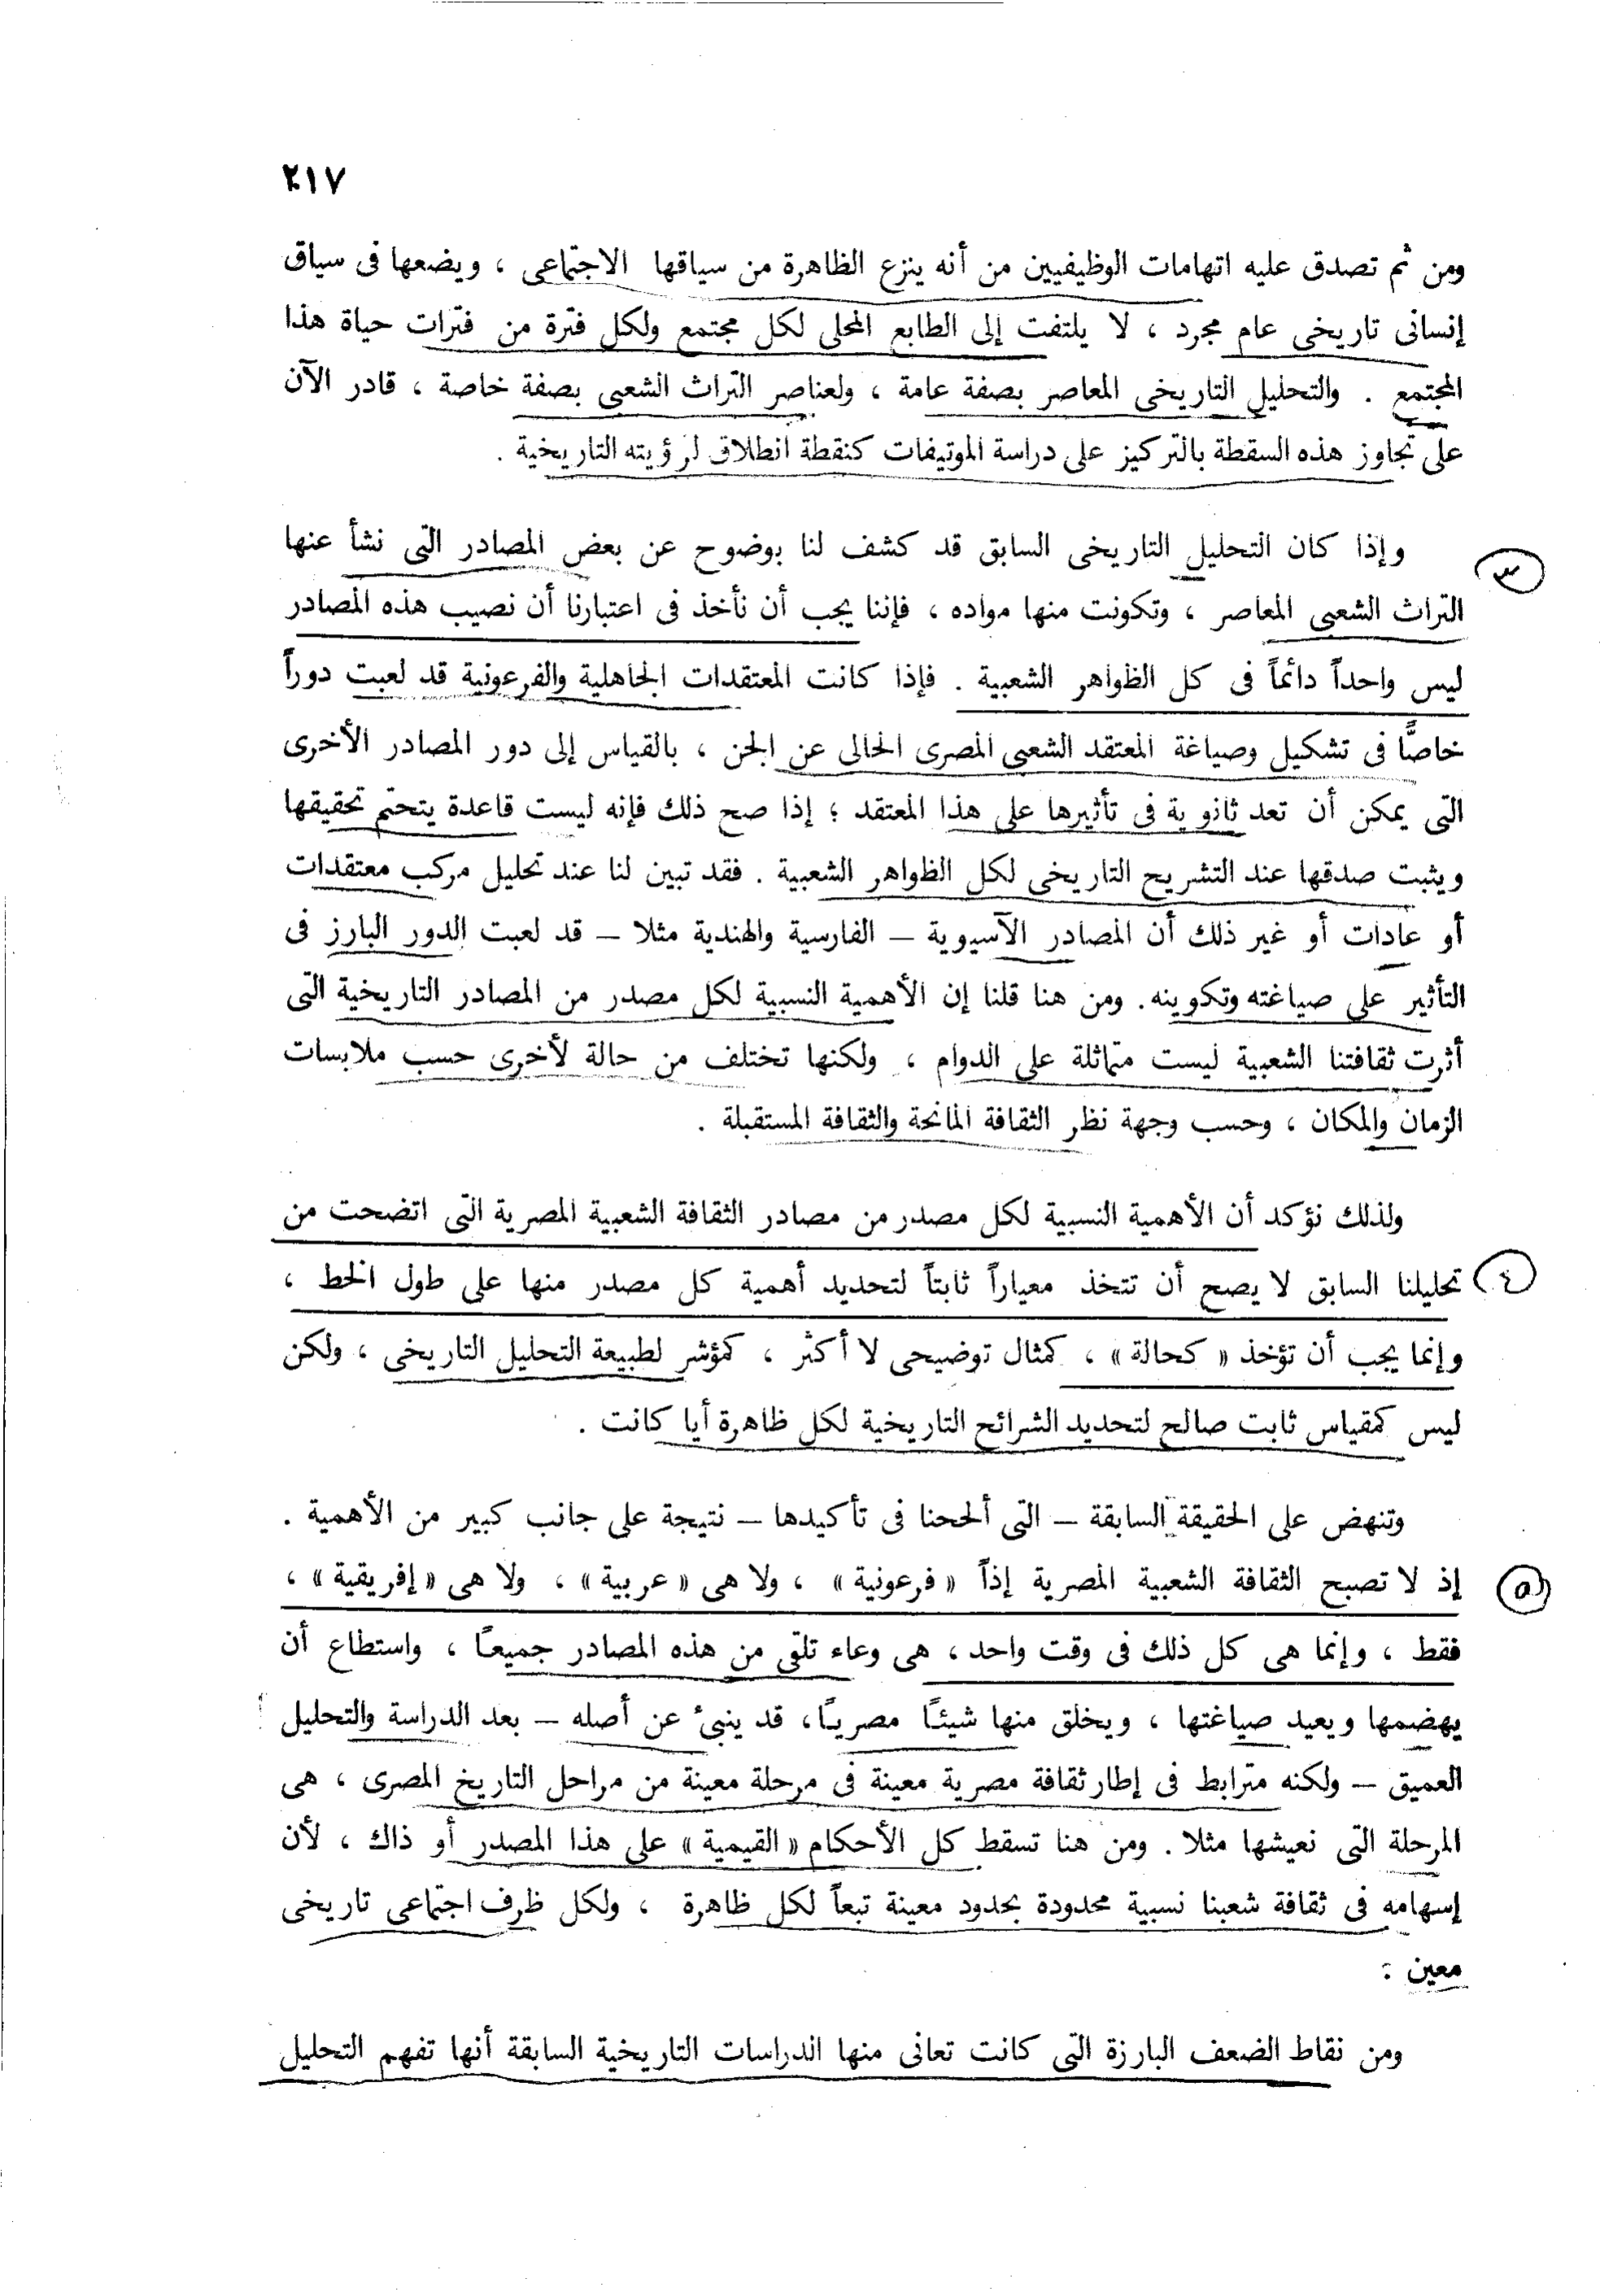 ٢١٧
ومن ثم تصدق عليه اتهامات الوظيفيين من أنه ينزع الظاهرة من سياقها الاجتماعى ، ويضعها فى سياق
إنسانى تاريخى عام مجرد ، لا يلتفت إلى الطابع المحلى لكل مجتمع ولكل فترة من فترات حياة هذا
المجتمع . والتحليل التاريخى المعاصر بصفة عامة ، ولعناصر التراث الشعبى بصفة خاصة ، قادر الآن
على تجاوز هذه السقطة بالتركيز على دراسة الموتيفات كنقطة انطلاق لرؤيته التاريخية .
وإذا كان التحليل التاريخى السابق قد كشف لنا بوضوح عن بعض المصادر التى نشأ عنها
٣
التراث الشعبى المعاصر ، وتكونت منها مواده ، فإننا يجب أن نأخذ فى اعتبارنا أن نصيب هذه المصادر
ليس واحداً دائماً فى كل الظواهر الشعبية . فإذا كانت المعتقدات الجاهلية والفرعونية قد لعبت دوراً
خاصًّا فى تشكيل وصياغة المعتقد الشعبى المصرى الحالى عن الجن ، بالقياس إلى دور المصادر الأخرى
التى يمكن أن تعد ثانوية فى تأثيرها على هذا المعتقد ؛ إذا صح ذلك فإنه ليست قاعدة يتحتم تحقيقها
ويثبت صدقها عند التشريح التاريخى لكل الظواهر الشعبية . فقد تبين لنا عند تحليل مركب معتقدات
أو عادات أو غير ذلك أن المصادر الآسيوية – الفارسية والهندية مثلا – قد لعبت الدور البارز فى
التأثير على صياغته وتكوينه. ومن هنا قلنا إن الأهمية النسبية لكل مصدر من المصادر التاريخية التى
أثرت ثقافتنا الشعبية ليست متماثلة على الدوام ، ولكنها تختلف من حالة لأخرى حسب ملابسات
الزمان والمكان ، وحسب وجهة نظر الثقافة المانحة والثقافة المستقبلة .
ولذلك نؤكد أن الأهمية النسبية لكل مصدر من مصادر الثقافة الشعبية المصرية التى اتضحت من
٤
تحليلنا السابق لا يصح أن تتخذ معياراً ثابتاً لتحديد أهمية كل مصدر منها على طول الخط ،
وإنما يجب أن تؤخذ « كحالة» ، كمثال توضيحى لا أكثر ، كمؤشر لطبيعة التحليل التاريخى ، ولكن
ليس كمقياس ثابت صالح لتحديد الشرائح التاريخية لكل ظاهرة أيا كانت .
وتنهض على الحقيقة السابقة – التى ألححنا فى تأكيدها – نتيجة على جانب كبير من الأهمية .
٥
إذ لا تصبح الثقافة الشعبية المصرية إذاً « فرعونية» ، ولا هى « عربية» ، ولا هى « إفريقية» ،
فقط ، وإنما هى كل ذلك فى وقت واحد ، هى وعاء تلقى من هذه المصادر جميعًا ، واستطاع أن
يهضمها ويعيد صياغتها ، ويخلق منها شيئًا مصريًا، قد ينبئ عن أصله – بعد الدراسة والتحليل
العميق – ولكنه مترابط فى إطار ثقافة مصرية معينة فى مرحلة معينة من مراحل التاريخ المصرى ، هى
المرحلة التى نعيشها مثلا . ومن هنا تسقط كل الأحكام « القيمية» على هذا المصدر أو ذاك ، لأن
إسهامه فى ثقافة شعبنا نسبية محدودة بحدود معينة تبعاً لكل ظاهرة ، ولكل ظرف اجتماعى تاريخى
معين :
ومن نقاط الضعف البارزة التى كانت تعانى منها الدراسات التاريخية السابقة أنها تفهم التحليل